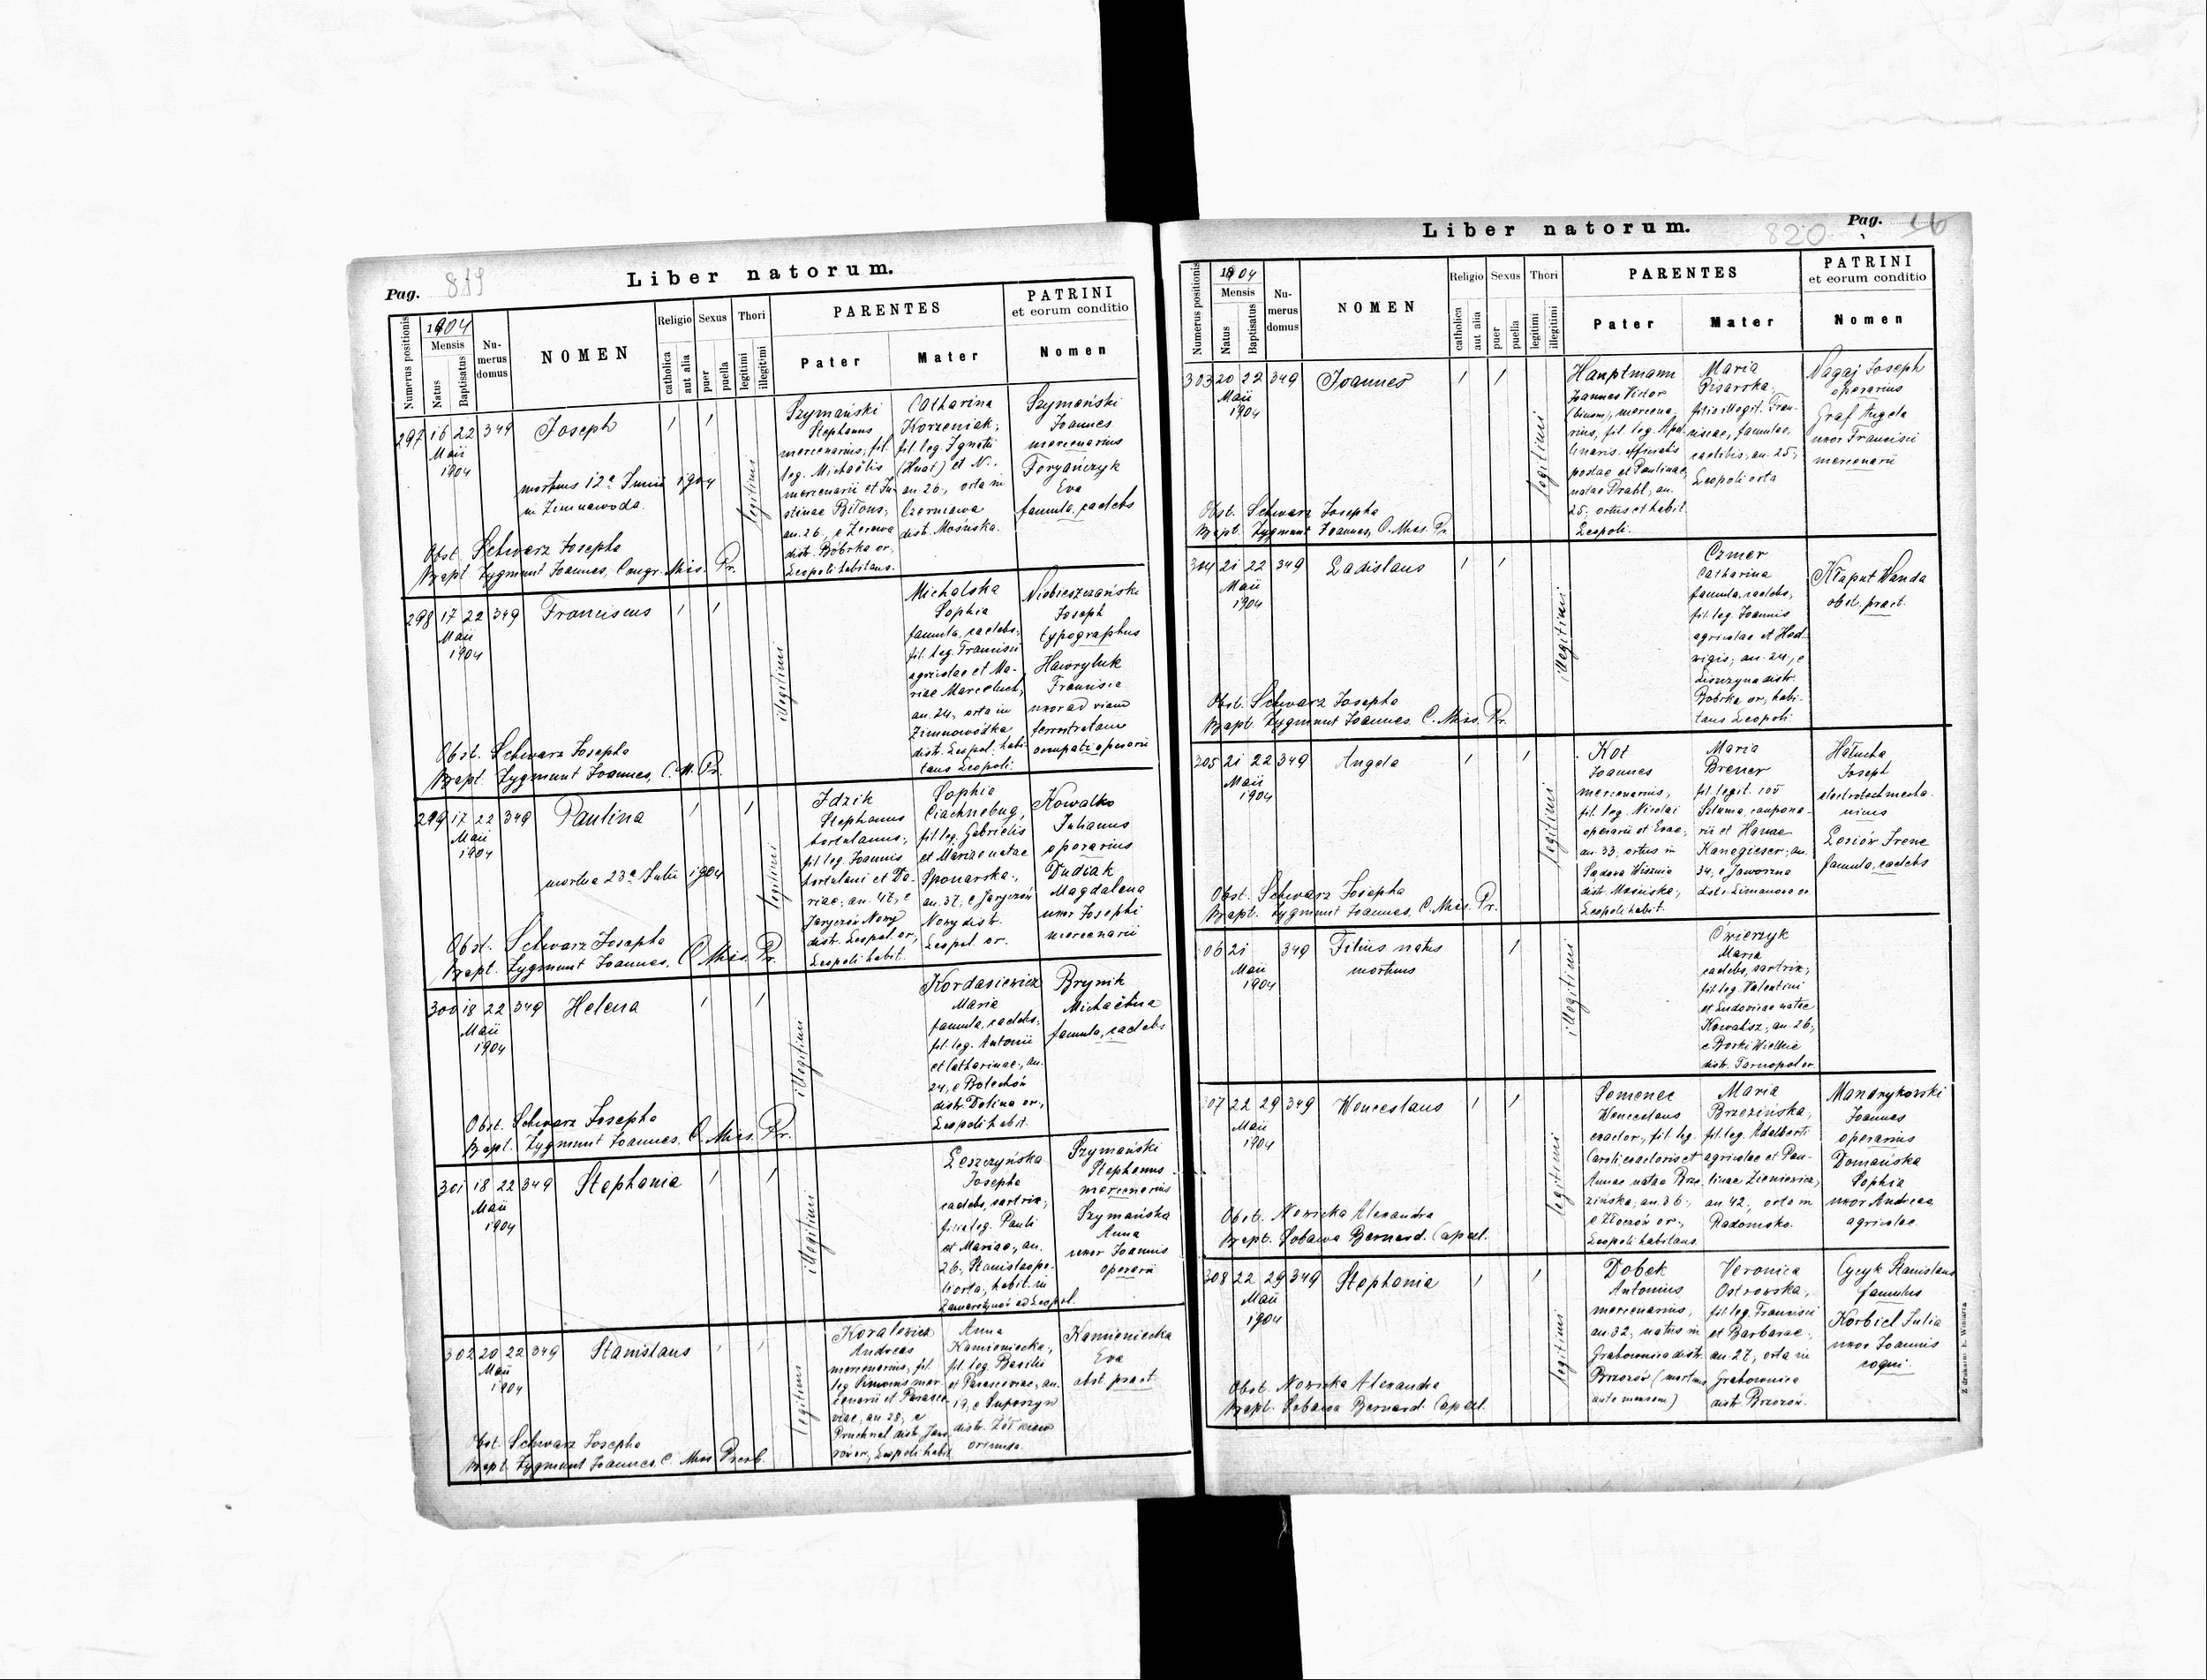 Pag. 819
Liber natorum.
Numerus positionis
1904
Mensis
Natus
Baptisatus
Nu-
merus
domus
NOMEN
Religio
catholica
aut alia
Sexus
puer
puella
Thori
legitimi
illegitimi
PARENTES
Pater
Mater
PATRINI
et eorum conditio
Nomen
297 16 22 349 Joseph
Maii
1904
mortuus 12a Junii 1904
in Zimnawoda.
Obst. Schwarz Josepha
Bapt. Zygmunt Joannes, Congr. Miss. Pr.
legitimi
Szymański
Stephanus
mercenarius, fil.
leg. Michaëlis
mercenarii et Ju-
stinae Bitous,
an. 26, e
distr. Bóbrka or.
Leopoli habitans.
Catharina
Korzeniak,
fil. leg. Ignatii
(Hnat) et N.,
an. 26, orta in
Czerniawa
distr. Mościska.
Szymański
Joannes
mercenarius
Foryańczyk
Eva
famula, caelebs
298 17 22 349 Franciscus
Maii
1904
Obst. Schwarz Josepha
Bapt. Zygmunt Joannes, C. M. Pr.
illegitimi
Michalska
Sophia
famula, caelebs,
fil. leg. Francisci
agricolae et Ma-
riae
an. 24, orta in
Zimnowódka
distr. Leopol. habi-
tans Leopoli.
Niebieszczański
Joseph
typographus
Hawryluk
Francisca
uxor ad viam
ferrostratam
occupati operarii
299 17 22 349 Paulina
Maii
1904
mortua 23a Julii 1904
Obst. Schwarz Josepha
Bapt. Zygmunt Joannes, C. Miss. Pr.
legitimi
Idzik
Stephanus
hortulanus,
fil. leg. Joannis
hortulani et Da-
riae, an. 47, e
Jaryczów Nowy
distr. Leopol. or.,
Leopoli habit.
Sophia
Ciachnebug,
fil. leg. Gabrielis
et Mariae natae
Sponarska,
an. 37, e Jaryczów
Nowy distr.
Leopol. or.
Kowalko
Julianus
operarius
Dudiak
Magdalena
uxor Josephi
mercenarii
300 18 22 349 Helena
Maii
1904
Obst. Schwarz Josepha
Bapt. Zygmunt Joannes, C. Miss. Pr.
illegitimi
Kordasiewicz
Maria
famula, caelebs,
fil. leg. Antonii
et Catharinae, an.
24, e Bolechów
distr. Dolina or.,
Leopoli habit.
Brynik
Michaëlina
famula, caelebs
301 18 22 349 Stephania
Maii
1904
illegitimi
Leszczyńska
Josepha
caelebs, sartrix,
filia leg. Pauli
et Mariae, an.
26, Stanislaopo-
li orta, habit. in
Zamarstynów ad Leopol.
Szymański
Stephanus
mercenarius
Szymańska
Anna
uxor Joannis
operarii
302 20 22 349 Stanislaus
Maii
1904
Obst. Schwarz Josepha
Bapt. Zygmunt Joannes, C. Miss. Presb.
legitimi
Koralewicz
Andreas
mercenarius, fil.
leg. Simeonis mer-
cenarii et Parasce-
viae, an. 28, e
Pruchnal distr. Jawo-
rów or., Leopoli habit.
Anna
Kamieniecka,
fil. leg. Basilii
et Parasceviae, an.
19, e Suposzyn
distr. Żółkiew
oriunda.
Kamieniecka
Eva
obst. pract.
Liber natorum.
820 Pag.
Numerus positionis
1904
Mensis
Natus
Baptisatus
Nu-
merus
domus
NOMEN
Religio
catholica
aut alia
Sexus
puer
puella
Thori
legitimi
illegitimi
PARENTES
Pater
Mater
PATRINI
et eorum conditio
Nomen
303 20 22 349 Joannes
Maii
1904
Obst. Schwarz Josepha
Bapt. Zygmunt Joannes, C. Miss. Pr.
legitimi
Hauptmann
Joannes Victor
(binom), mercena-
rius, fil. leg. Apol-
linaris, officialis
postae et Paulinae
natae Prahl, an.
25, ortus et habit.
Leopoli.
Maria
Pisarska,
filia illegit. Fran-
ciscae, famulae,
caelibis, an. 25,
Leopoli orta
Nagaj Joseph
operarius
Graf Angela
uxor Francisci
mercenarii
304 21 22 349 Ladislaus
Maii
1904
Obst. Schwarz Josepha
Bapt. Zygmunt Joannes, C. Miss. Pr.
illegitimi
Czmer
Catharina
famula, caelebs,
fil. leg. Joannis
agricolae et Hed-
wigis, an. 24, e
distr.
Bóbrka or., habi-
tans Leopoli.
Kłaput Wanda
obst. pract.
305 21 22 349 Angela
Maii
1904
Obst. Schwarz Josepha
Bapt. Zygmunt Joannes, C. Miss. Pr.
legitimi
Kot
Joannes
mercenarius,
fil. leg. Nicolai
operarii et Evae,
an. 33, ortus in
Sądowa Wisznia
distr. Mościska,
Leopoli habit.
Maria
Brener
fil. legit.
Szluma, caupona-
rii et Hanae
Kanegieser, an.
34, e Jaworzna
distr. Limanowa or.
Hałucha
Joseph
electrotechnecha-
nicus
Łosiów Irene
famula, caelebs
306 21 349 Filius natus
Maii mortuus
1904
illegitimi
Ćwierzyk
Maria
caelebs, sartrix,
fil. leg. Valentini
et Ludovicae natae
Kowalisz, an. 26,
e Borki Wielkie
distr. Tarnopol or.
307 22 29 349 Wenceslaus
Maii
1904
Obst. Nowicka Alexandra
Bapt. Sobawa Bernard. Capell.
legitimi
Semenec
Wenceslaus
exactor, fil. leg.
Caroli exactoris et
Annae natae Brze-
zińska, an. 36,
e Złoczów or.,
Leopoli habitans.
Maria
Brzezińska,
fil. leg. Adalberti
agricolae et Pau-
linae Zieniewicz,
an. 42, orta in
Radomsko.
Mandrykowski
Joannes
operarius
Domańska
Sophia
uxor Andreae
agricolae
308 22 29 349 Stephania
Maii
1904
Obst. Nowicka Alexandra
Bapt. Sobawa Bernard. Capell.
legitimi
Dobek
Antonius
mercenarius,
an. 32, natus in
Grabownica distr.
Brzozów (mortuus
ante mensem)
Veronica
Ostrowska,
fil. leg. Francisci
et Barbarae,
an. 27, orta in
Grabownica
distr. Brzozów.
Cycyk Stanislaus
famulus
Korbiel Julia
uxor Joannis
coqui
Z drukarni E. Winiarza